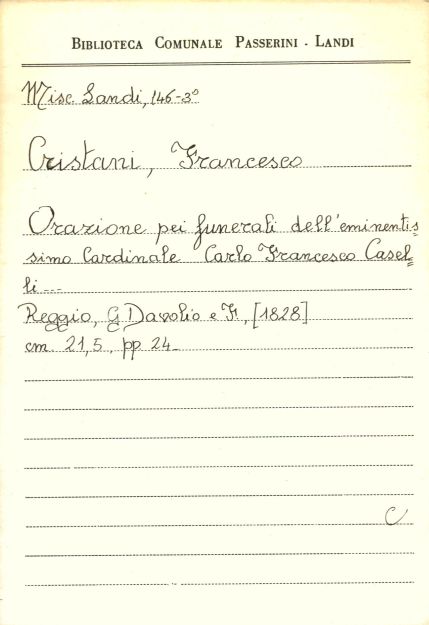 BIBLIOTECA COMUNALE PASSERINI - LANDI
Misc. Landi, 146-3º
Cristani, Francesco
Orazione pei funerali dell'eminentis=
simo Cardinale Carlo Francesco Casel=
li ---
Reggio, G Davolio e F., [1828]
cm. 21,5., pp 24_
C